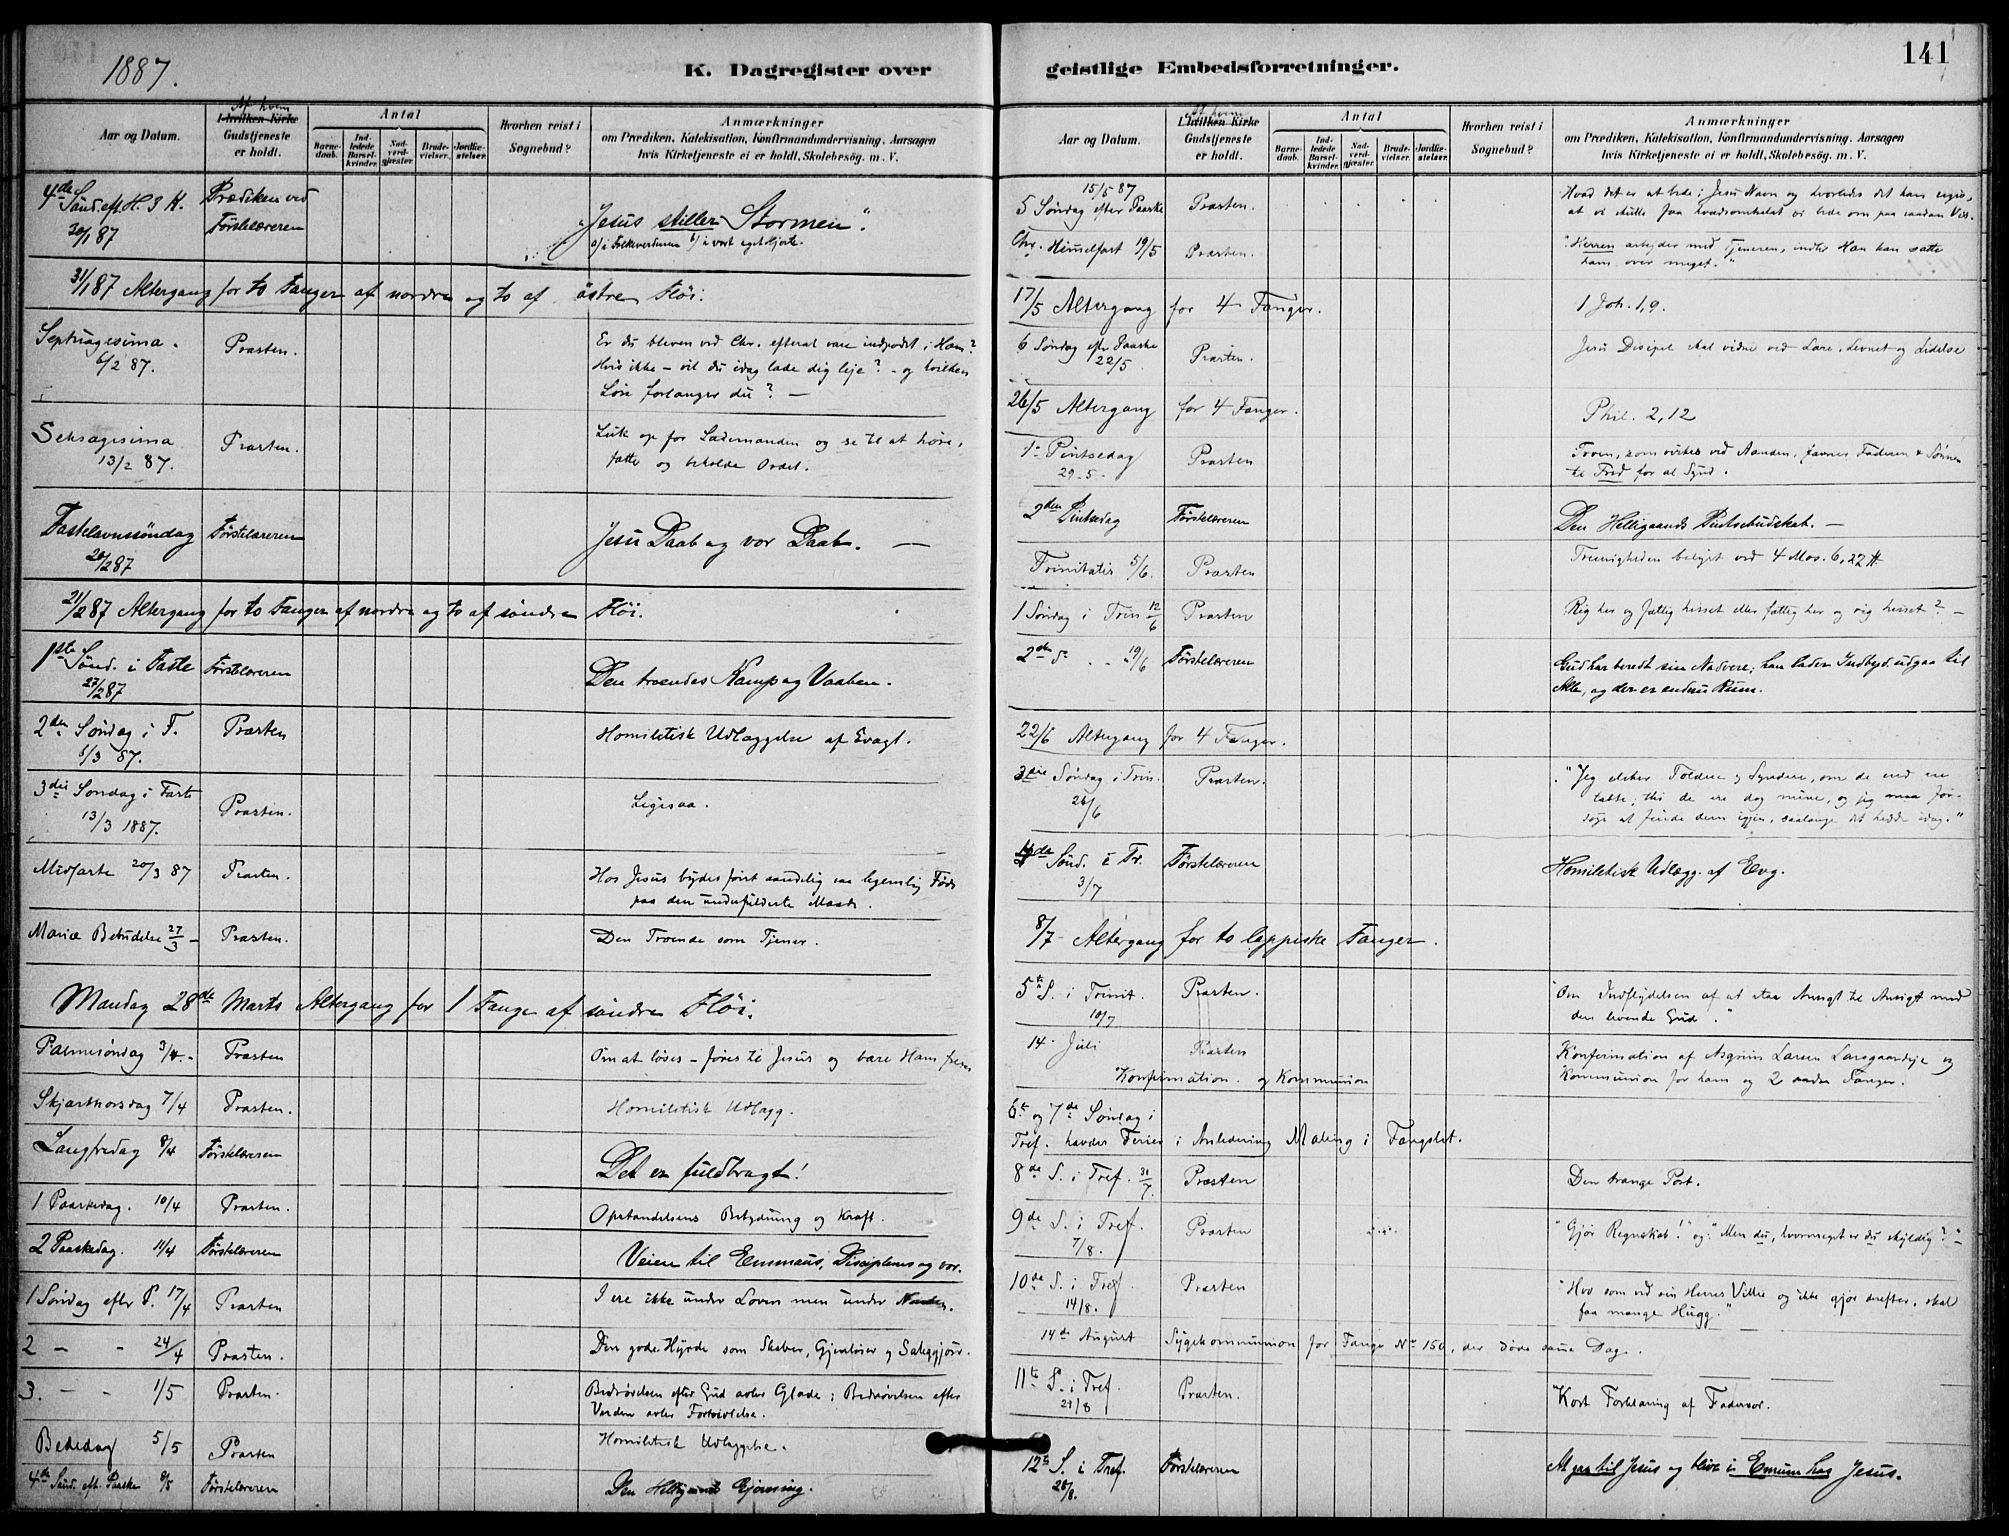 1887.
K. Dagregister over
Af hvem
I hvilken Kirke
Gudstjeneste
er holdt.
Aar og Datum.
Antal
Barne-
daab.
Ind-
ledede
Barsel-
kvinder.
Nad-
verd-
gjester.
Brude-
vielser.
Jordfæ-
stelser.
Hvorhen reist i
Sognebud?
Anmærkninger
om Prædiken, Katekisation, Konfirmandundervisning, Aarsagen
hvis Kirketjeneste ei er holdt, Skolebesög, m. V.
4de Sönd. eft. H. 3 K.
30/1 87
Prædiken ved
Förstelæreren
"Jesus stiller Stormen".
a) i Folkeverdenen b) i vort eget Hjerte.
31/1 87 Altergang for to Fanger af nordre og to af östre Flöi.
Septuagesima.
6/2 87.
Præsten.
Er du bleven ved Chr. efterat være indpodet i Ham?
Hvis ikke – vil du idag lade dig leje? – og hvilken
Lön forlanger du? –
Seksagesima
13/2 87.
Præsten.
Luk op for Sædemanden og se til at höre,
fatte og beholde Ordet.
Fastelavnssöndag
20/2 87
Förstelæreren
Jesu Daab og vor Daab. —
21/2 87 Altergang for to Fanger af nordre og to af söndre Flöi.
1ste Sönd. i Faste
27/2 87
Förstelæreren
Den troendes Kamp og Vaaben.
2den Söndag i F.
6/3 87.
Præsten
Homiletisk Udlæggelse af Evagl.
3die Söndag i Faste
13/3 1887.
Præsten.
Ligesaa.
Midfaste 20/3 87
Præsten.
Hos Jesus bydes först aandelig saa legemlig Föde
paa den underfuldeste Maade.
Mariæ Bebudelse 27/3 –
Præsten.
Den Troende som Tjener.
Mandag 28de Marts Altergang for 1 Fange af söndre Flöi.
Palmesöndag 3/4. –
Præsten
Om at löses – föres til Jesus og bære Ham frem
Skjærthorsdag 7/4
Præsten.
Homiletisk Udlægg.
Langfredag 8/4
Förstelæreren
Det er fuldbragt!
1 Paaskedag. 10/4
Præsten.
Opstandelsens Betydning og Kraft.
2 Paaskedag. 11/4
Förstelæreren
Veien til Emmaus, Disciplenes og vor.
1 Söndag efter P. 17/4
Præsten
I ere ikke under Loven men under Naaden.
2 – – 24/4
Præsten.
Den gode Hyrde som Skaber, Gjenlöser og Saliggjörer.
3. – – 1/5
Præsten.
Bedrövelsen efter Gud avler Glæde; Bedrövelsen efter
Verden avler Fortvivlelse.
Bededag 5/5
Præsten
Homiletisk Udlæggelse.
4de Sönd. eft. Paaske 8/5
Förstelæreren
Den Helligaands Gjerning.
geistlige Embedsforretninger.
141
Af hvem
I hvilken Kirke
Gudstjeneste
er holdt.
Aar og Datum.
Antal
Barne-
daab.
Ind-
ledede
Barsel-
kvinder.
Nad-
verd-
gjester.
Brude-
vielser.
Jordfæ-
stelser.
Hvorhen reist i
Sognebud?
Anmærkninger
om Prædiken, Katekisation, Konfirmandundervisning, Aarsagen
hvis Kirketjeneste ei er holdt, Skolebesög, m. V.
15/5 87
5 Söndag efter Paaske
Præsten.
Hvad det er at bede i Jesu Navn og hvorledes det kan siges,
at vi skulle faa hvadsomhelst vi bede om paa saadan Vis.
Chr. Himmelfart 19/5
Præsten.
"Herren arbejder med Tjeneren, indtil Han kan sætte
ham over meget."
17/5 Altergang for 4 Fanger.
1 Joh. 1,9.
6 Söndag eftr Paaske
22/5
Præsten.
Jesu Discipel skal vidne ved Lære, Levnet og Lidelse
26/5 Altergang for 4 Fanger.
Phil. 2,12
1ste Pintsedag
29–5.
Præsten
Troen, som virkes ved Aanden, favner Faderen & Sönnen
til Fred for al Synd.
2den Pintsedag
Förstelæreren
Den Helligaands Pintsebudskab. —
Trinitatis 5/6.
Præsten
Treenigheden belyst ved 4 Mos. 6,22 ff
1 Söndag i Trin 12/6
Præsten
Rig her og fattig hisset eller fattig her og rig hisset? –
2den S. . . 19/6
Förstelæreren
Gud har beredt sin Nadvere; han lader Indbyd. udgaa til
Alle, og der er endnu Rum.
22/6 Altergang for 4 Fanger.
3die Söndag i Trin.
26/6
Præsten.
"Jeg elsker Toldere og Syndere, om de end ere
tabte; thi de ere dog mine, og jeg maa for-
söge at finde dem igjen, saalænge det hedder idag."
4de Sönd. i Tr.
3/7
Förstelæreren
Homiletisk Udlægg. af Evg.
8/7 Altergang for to lappiske Fanger.
5te S. i Trinit.
10/7
Præsten.
"Om Indflydelsen af at staa Ansigt til Ansigt med
den levende Gud."
14. Juli
Præsten
Konfirmation og Kommunion
Konfirmation af Asgrim Larsen Larsgaardeje og
Kommunion for ham og 2 andre Fanger.
6te og 7de Söndag i
Tref. havdes Ferier i Anledning Maling i Fængslet.
8de S. i Tref. 31/7.
Præsten
Den trange Port.
9de S. i Tref.
7/8.
Præsten
"Gjör Regnskab!" og: "Men du, hvormeget er du skyldig?"
10de S. i Tref
14/8.
Præsten
"Hvo som ved sin Herres Villie og ikke gjör derefter, skal
faa mange Hugg."
14de August Sygekommunion for Fange No 150, der döde samme Dag.
11te S. i Tref.
21/8
Præsten.
"Kort Forklaring af Fadervor.
12te S. i Tref.
28/8.
Förstelæreren
At gaa til Jesus og blive i Enrum hos Jesus.